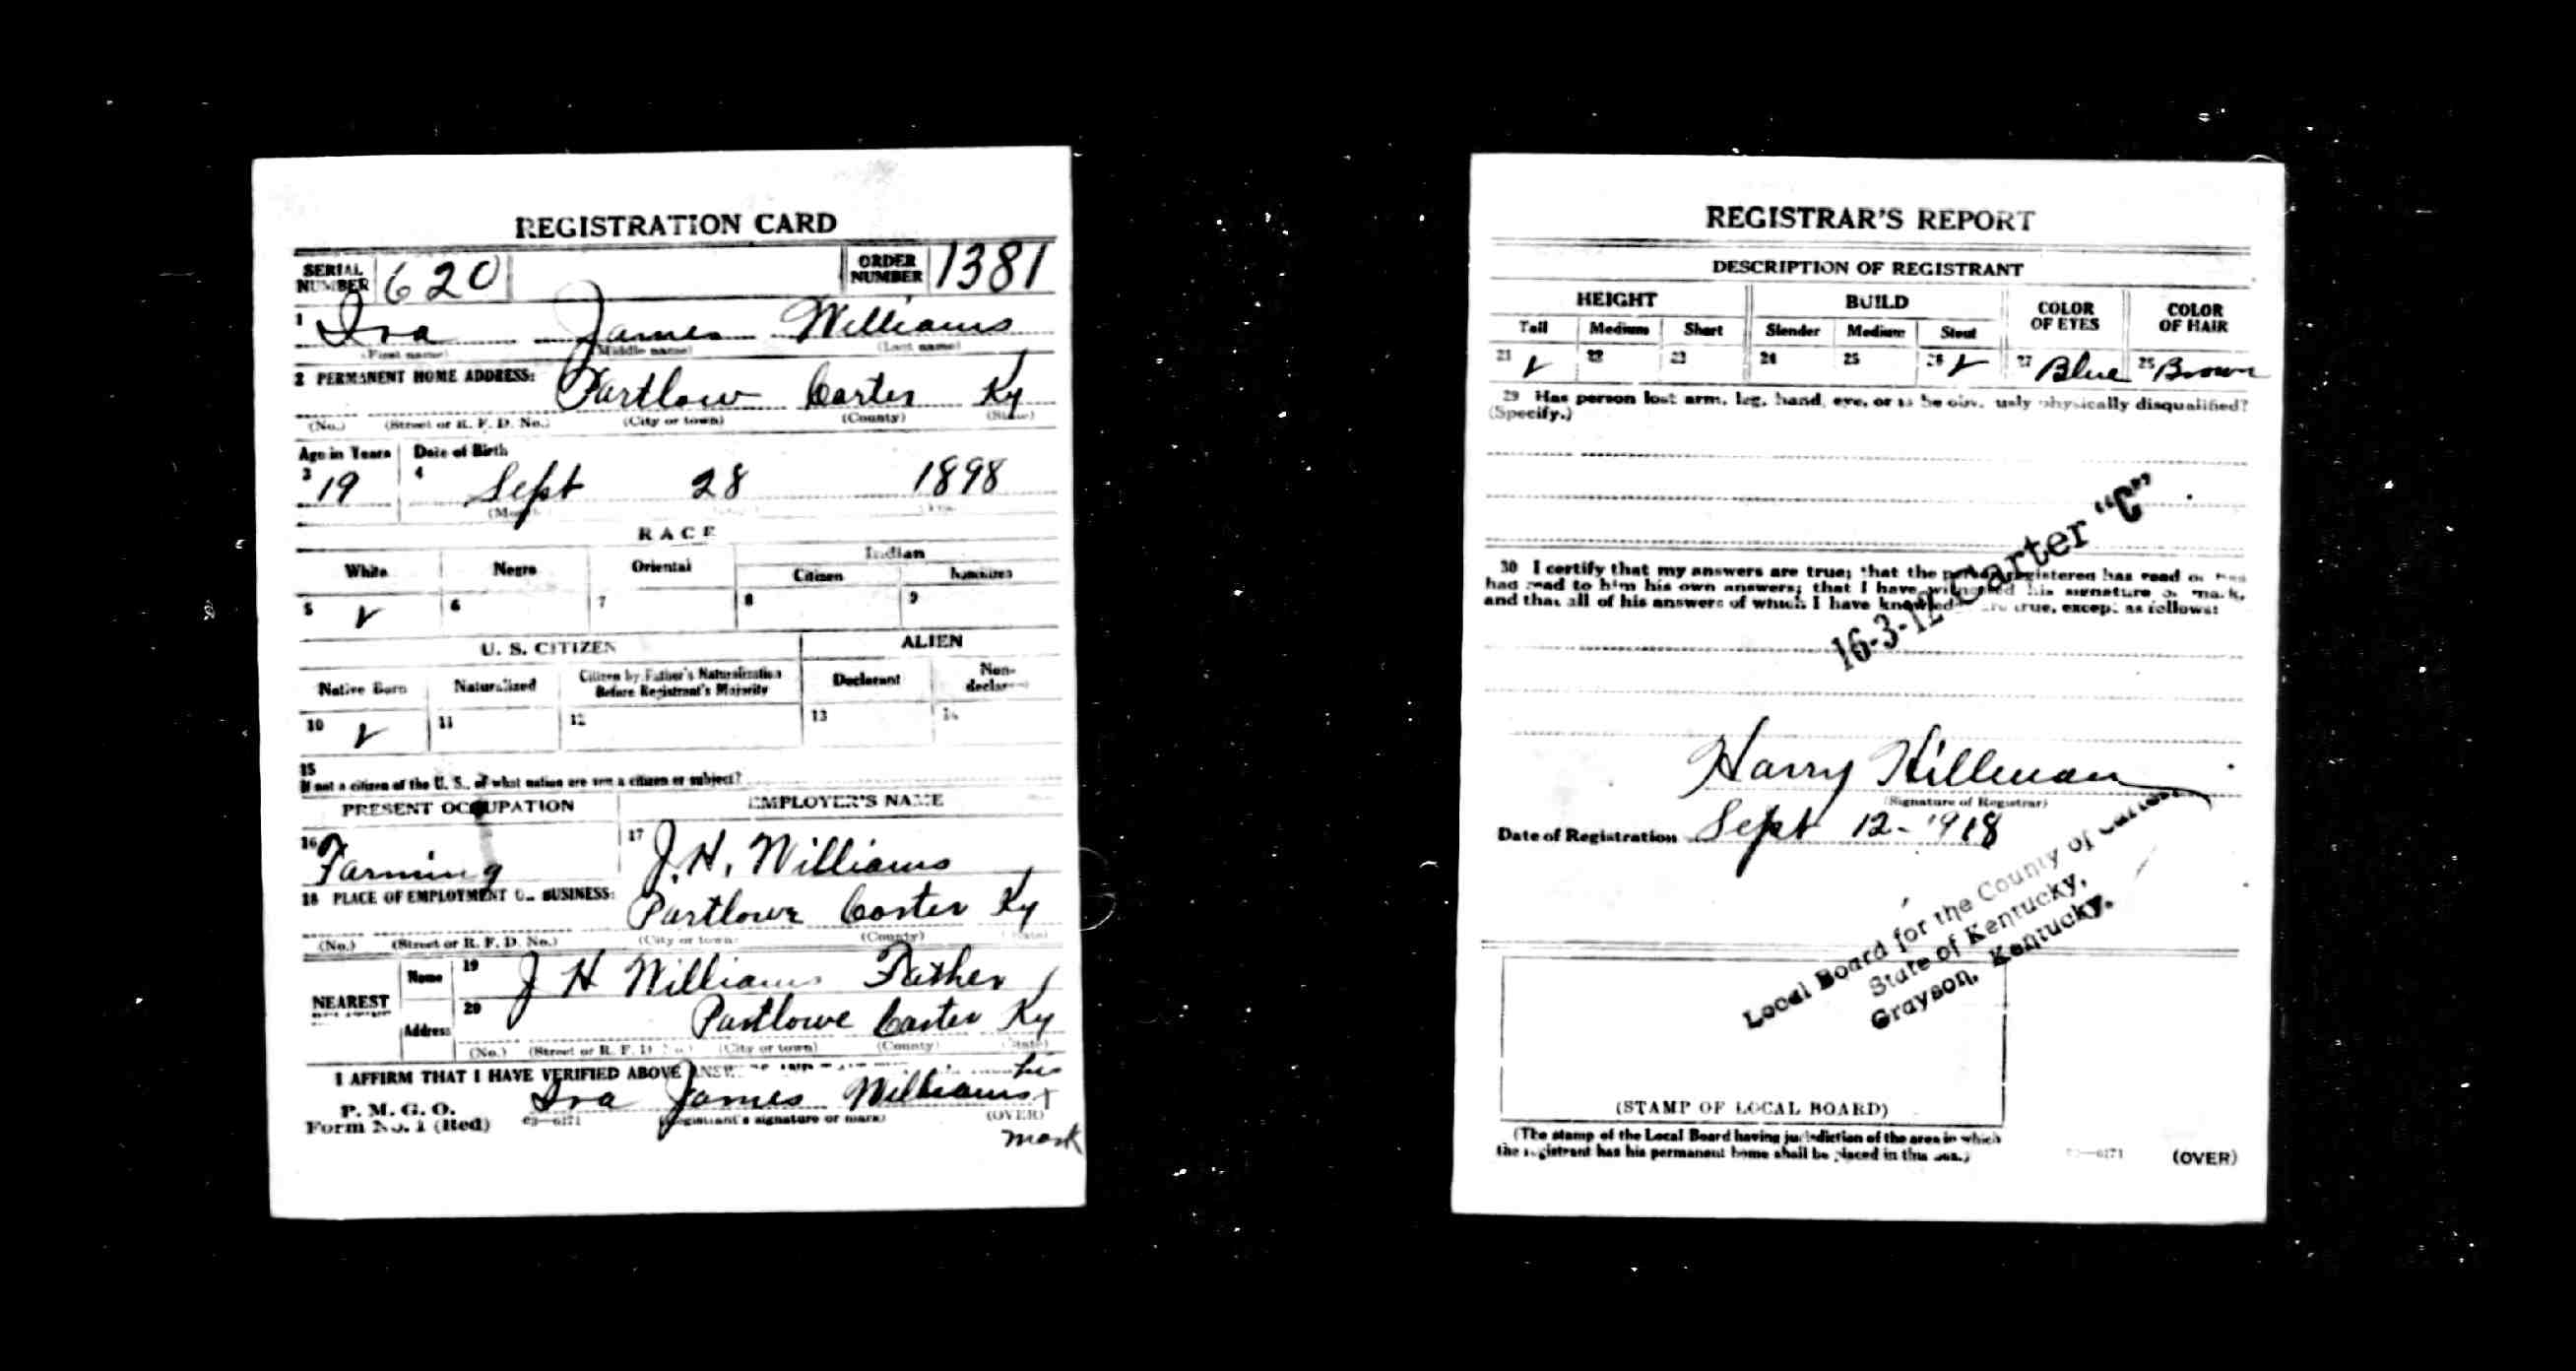 REGISTRATION CARD
SERIAL NUMBER 620 ORDER NUMBER 1381
1 Ira James Williams
(First name) (Middle name) (Last name)
2 PERMANENT HOME ADDRESS: Partlow Carter Ky
(No.) (Street or R. F. D. No.) (City or town) (County) (State)
Age in Years Date of Birth
3 19 4 Sept 28 1898
RACE
White Negro Oriental Indian
Citizen
5 ✓ 6 7 8 9
U. S. CITIZEN ALIEN
Native Born Naturalized Citizen by Father's Naturalization Before Registrant's Majority Declarant Non-
10 ✓ 11 12 13 14
15
If not a citizen of the U. S., of what nation are you a citizen or subject?
PRESENT OCCUPATION EMPLOYER'S NAME
16 Farming 17 J. H. Williams
18 PLACE OF EMPLOYMENT BUSINESS: Partlowe Carter Ky
(No.) (Street or R. F. D. No.) (City or town) (County) (State)
NEAREST Name 19 J H Williams Father
Address 20 Partlowe Carter Ky
(No.) (Street or R. F. D. No.) (City or town) (County) (State)
I AFFIRM THAT I HAVE VERIFIED ABOVE his
P. M. G. O. Ira James Williams X
Form No. 1 (Red) 03—6171 (Registrant's signature or mark) (OVER)
mark
REGISTRAR'S REPORT
DESCRIPTION OF REGISTRANT
HEIGHT BUILD COLOR OF EYES COLOR OF HAIR
Tall Medium Short Slender Medium Stout
21 ✓ 22 23 24 25 26 ✓ 27 Blue 28 Brown
29 Has person lost arm, leg, hand, eye, or is he obviously physically disqualified?
(Specify.)
30 I certify that my answers are true; that the person registered has read or has
had read to him his own answers; that I have witnessed his signature or mark,
and that all of his answers of which I have knowledge are true, except as follows:
16-3-12 Carter "C"
Harry Hillman
(Signature of Registrar)
Date of Registration Sept 12-1918
Local Board for the County of Carter
State of Kentucky,
Grayson, Kentucky.
(STAMP OF LOCAL BOARD)
(The stamp of the Local Board having jurisdiction of the area in which
the registrant has his permanent home shall be placed in this box.)
03—6171 (OVER)